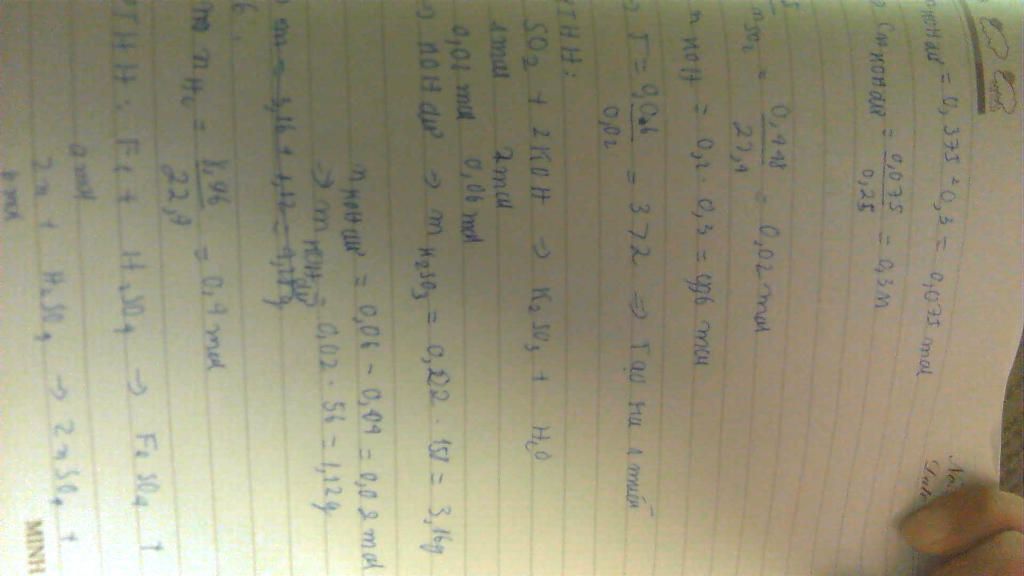 = 0,375 - 0,3 = 0,075 mol
= 0,075 / 0,25 = 0,3M
= 0,448 / 22,4 = 0,02 mol
n KOH = 0,2 . 0,3 = 0,06 mol
T = 0,06 / 0,02 = 3 > 2 => Tạo
PTHH:
SO2 + 2KOH → K2SO3 + H2O
1mol 2mol
0,06 mol
=> KOH dư => m = 0,02 . 158 = 3,16g
n KOH dư = 0,06 - 0,04 = 0,02 mol
=> m KOH dư = 0,02 . 56 = 1,12g
3,16 + 1,12 = 4,28g
n H2 = 8,96 / 22,4 = 0,4 mol
PTHH: Fe + H2SO4 → FeSO4 +
a mol
Zn + H2SO4 → ZnSO4 +
b mol
MINH